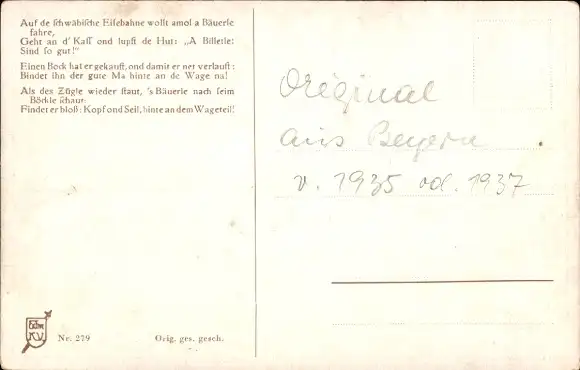 Auf de schwäbische Eisebahne wollt amol a Bäuerle
fahre,
Geht an d' Kass' ond lupft de Hut: „A Billetle!
Sind so gut!"
Einen Bock hat er gekauft, ond damit er net verlauft:
Bindet ihn der gute Ma hinte an de Wage na!
Als des Zügle wieder staut, 's Bäuerle nach seim
Böckle schaut:
Findet er bloß: Kopf ond Seil, hinte an dem Wageteil!
Original
aus Bayern
v. 1935 od. 1937
K.V.
Nr. 279 Orig. ges. gesch.